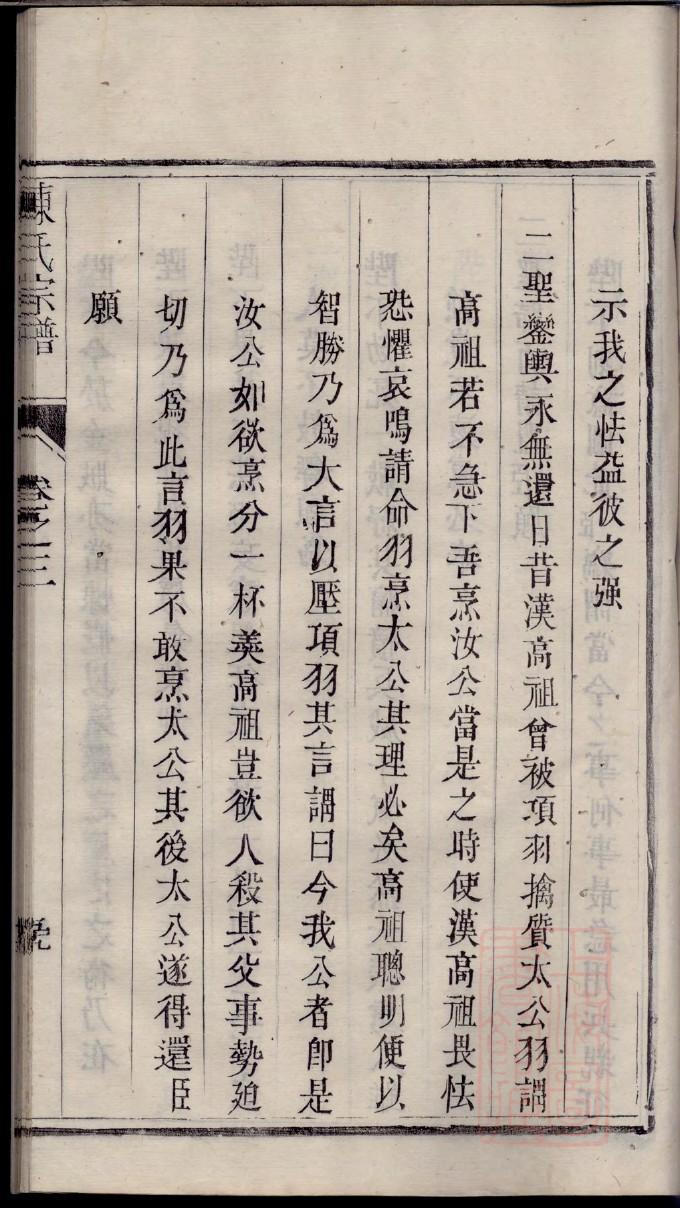 示我之怯益彼之强
二聖鑾輿永無還日昔漢高祖曾被項羽擒質太公羽謂
高祖若不急下吾烹汝公當是之時使漢高祖畏怯
恐懼哀鳴請命羽烹太公其理必矣高祖聰明便以
智勝乃爲大言以壓項羽其言謂曰今我公者卽是
汝公如欲烹分一杯羮高祖豈欲人殺其父事勢廹
切乃爲此言羽果不敢烹太公其後太公遂得還臣
願
陳氏宗譜 卷之三